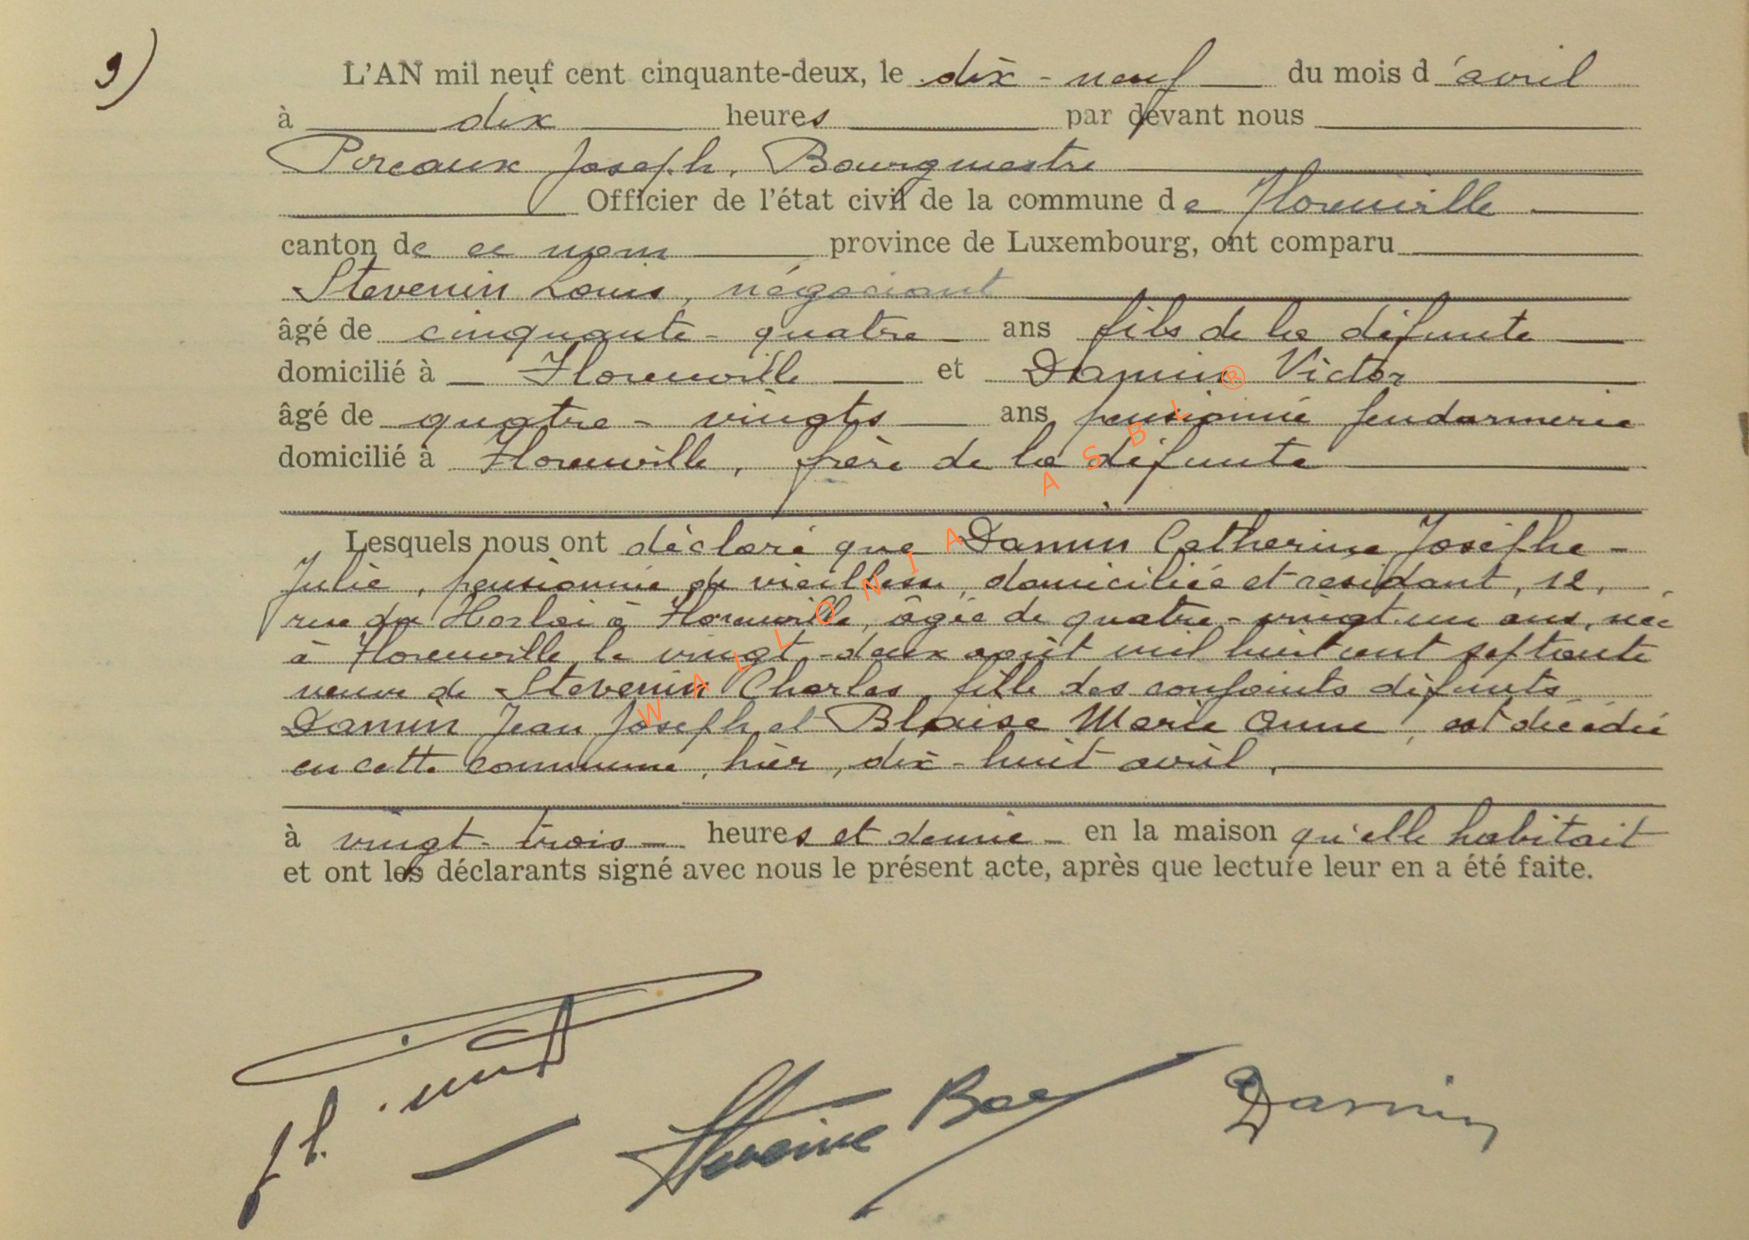 9)
L'AN mil neuf cent cinquante-deux, le dix-neuf du mois d'avril
à dix heures par devant nous
Pireaux Joseph, Bourgmestre
Officier de l'état civil de la commune de Florenville
canton de ce nom province de Luxembourg, ont comparu
Stevenin Louis, négociant
âgé de cinquante-quatre ans fils de la défunte
domicilié à Florenville et Damin Victor
âgé de quatre-vingts ans pensionné gendarmerie
domicilié à Florenville, frère de la défunte
Lesquels nous ont déclaré que Damin Catherine Josèphe-
Julie, pensionnée de vieillesse, domiciliée et résidant, 12,
rue du à Florenville, âgée de quatre-vingt-un ans, née
à Florenville, le vingt-deux août mil huit cent septante
veuve de Stevenin Charles, fille des conjoints défunts
Damin Jean Joseph et Blaise Marie Anne, est décédée
en cette commune, hier, dix-huit avril,
à vingt-trois heures et demie en la maison qu'elle habitait
et ont les déclarants signé avec nous le présent acte, après que lecture leur en a été faite.
Damin
WALLONIA ASBL®